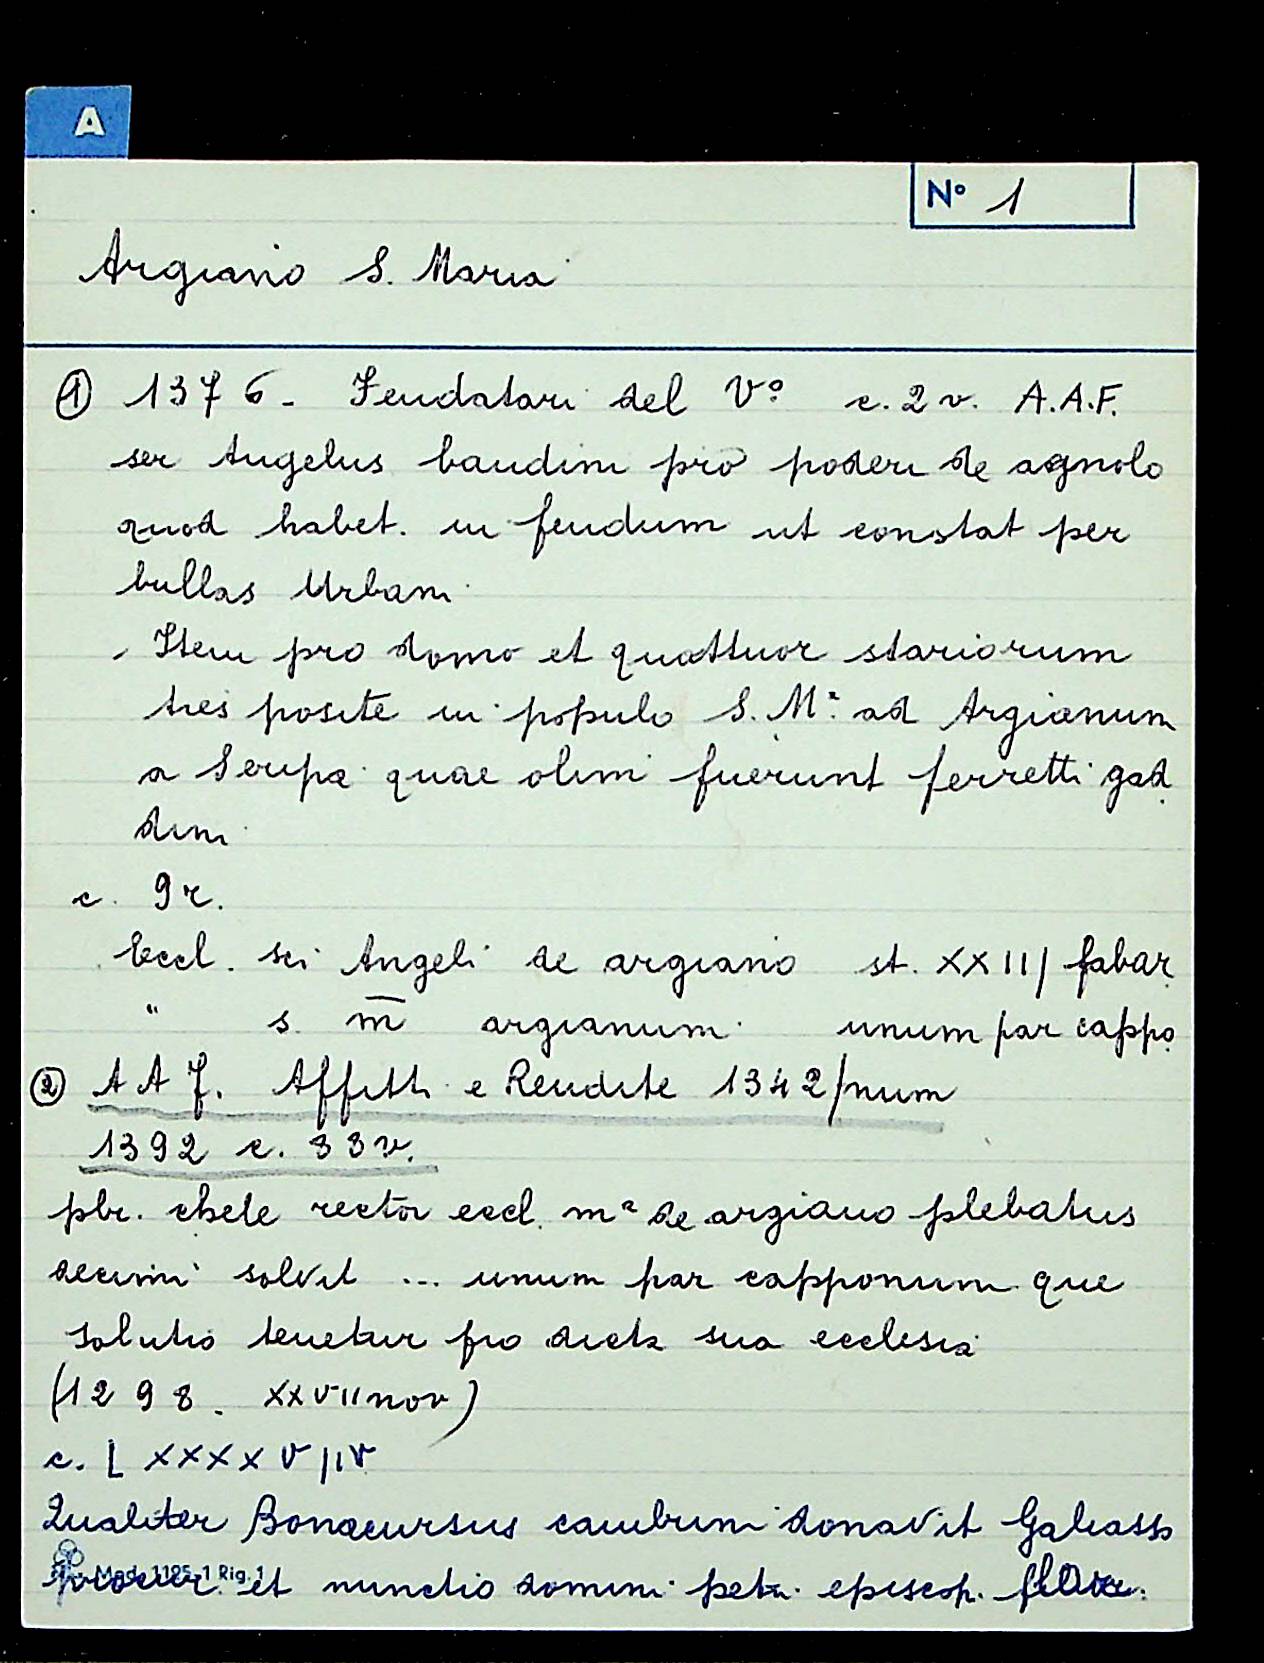 A
N° 1
Argiano S. Maria
① 1376 - Feudatari del V° c. 2 v. A.A.F.
ser Angelus baudini pro poderi de agnolo
quod habet in feudum ut constat per
bullas Urbani
, Item pro domo et quattuor stariorum
tres posite in populo S. Mª ad Argianum
a Scupa quae olim fuerunt ferretti gad
dini
c. 9 r.
Eccl. sci Angeli de argiano st. XXII/ fabar
" s. m̄ argianum unum par cappo
② A A F. Affitti e Rendite 1342/num
1392 c. 33 v.
pbr. chele rector eccl. mª de argiano plebatus
decimi solvit ... unum par capponum que
solutio tenetur pro dicta sua ecclesia
(1298. XXVII nov)
c. L XXXX V IIV
Qualiter Bonaccursus cambini donavit Galiasso
Mod. 1195-1 Rig. 1
procur. et nunctio domini petri episcop. flor.